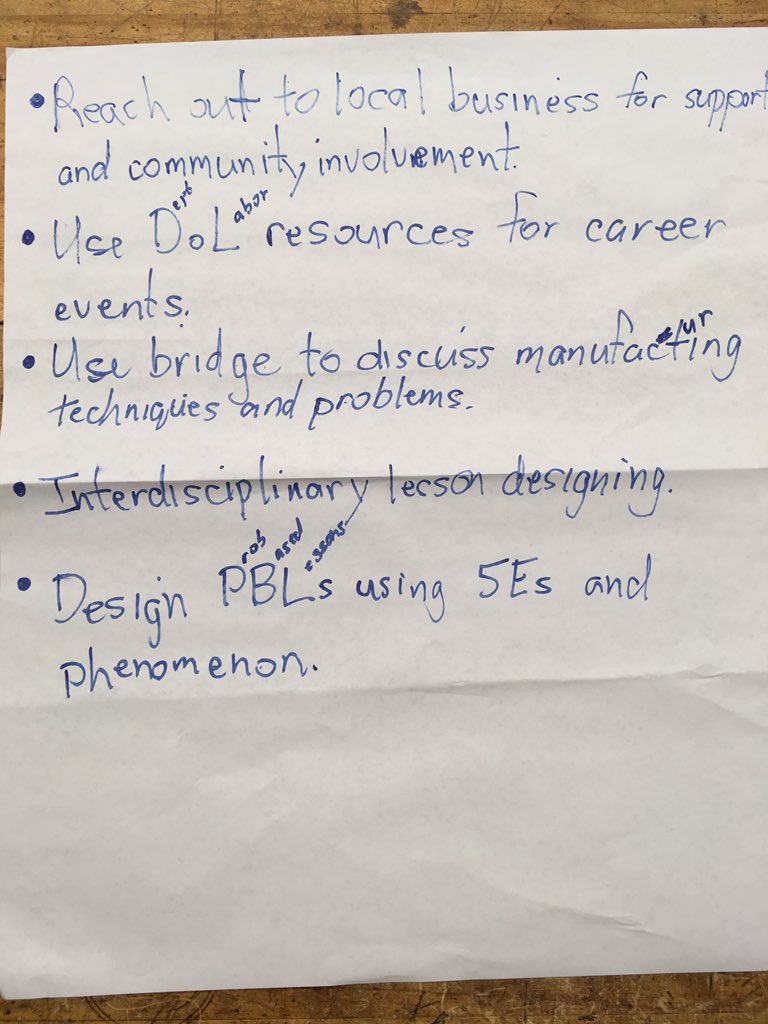 • Reach out to local business for support
and community involvement.
• Use DoL resources for career
ept abor
events.
• Use bridge to discuss manufacturing
techniques and problems.
• Interdisciplinary lesson designing.
rob ased essons
• Design PBLs using 5Es and
phenomenon.